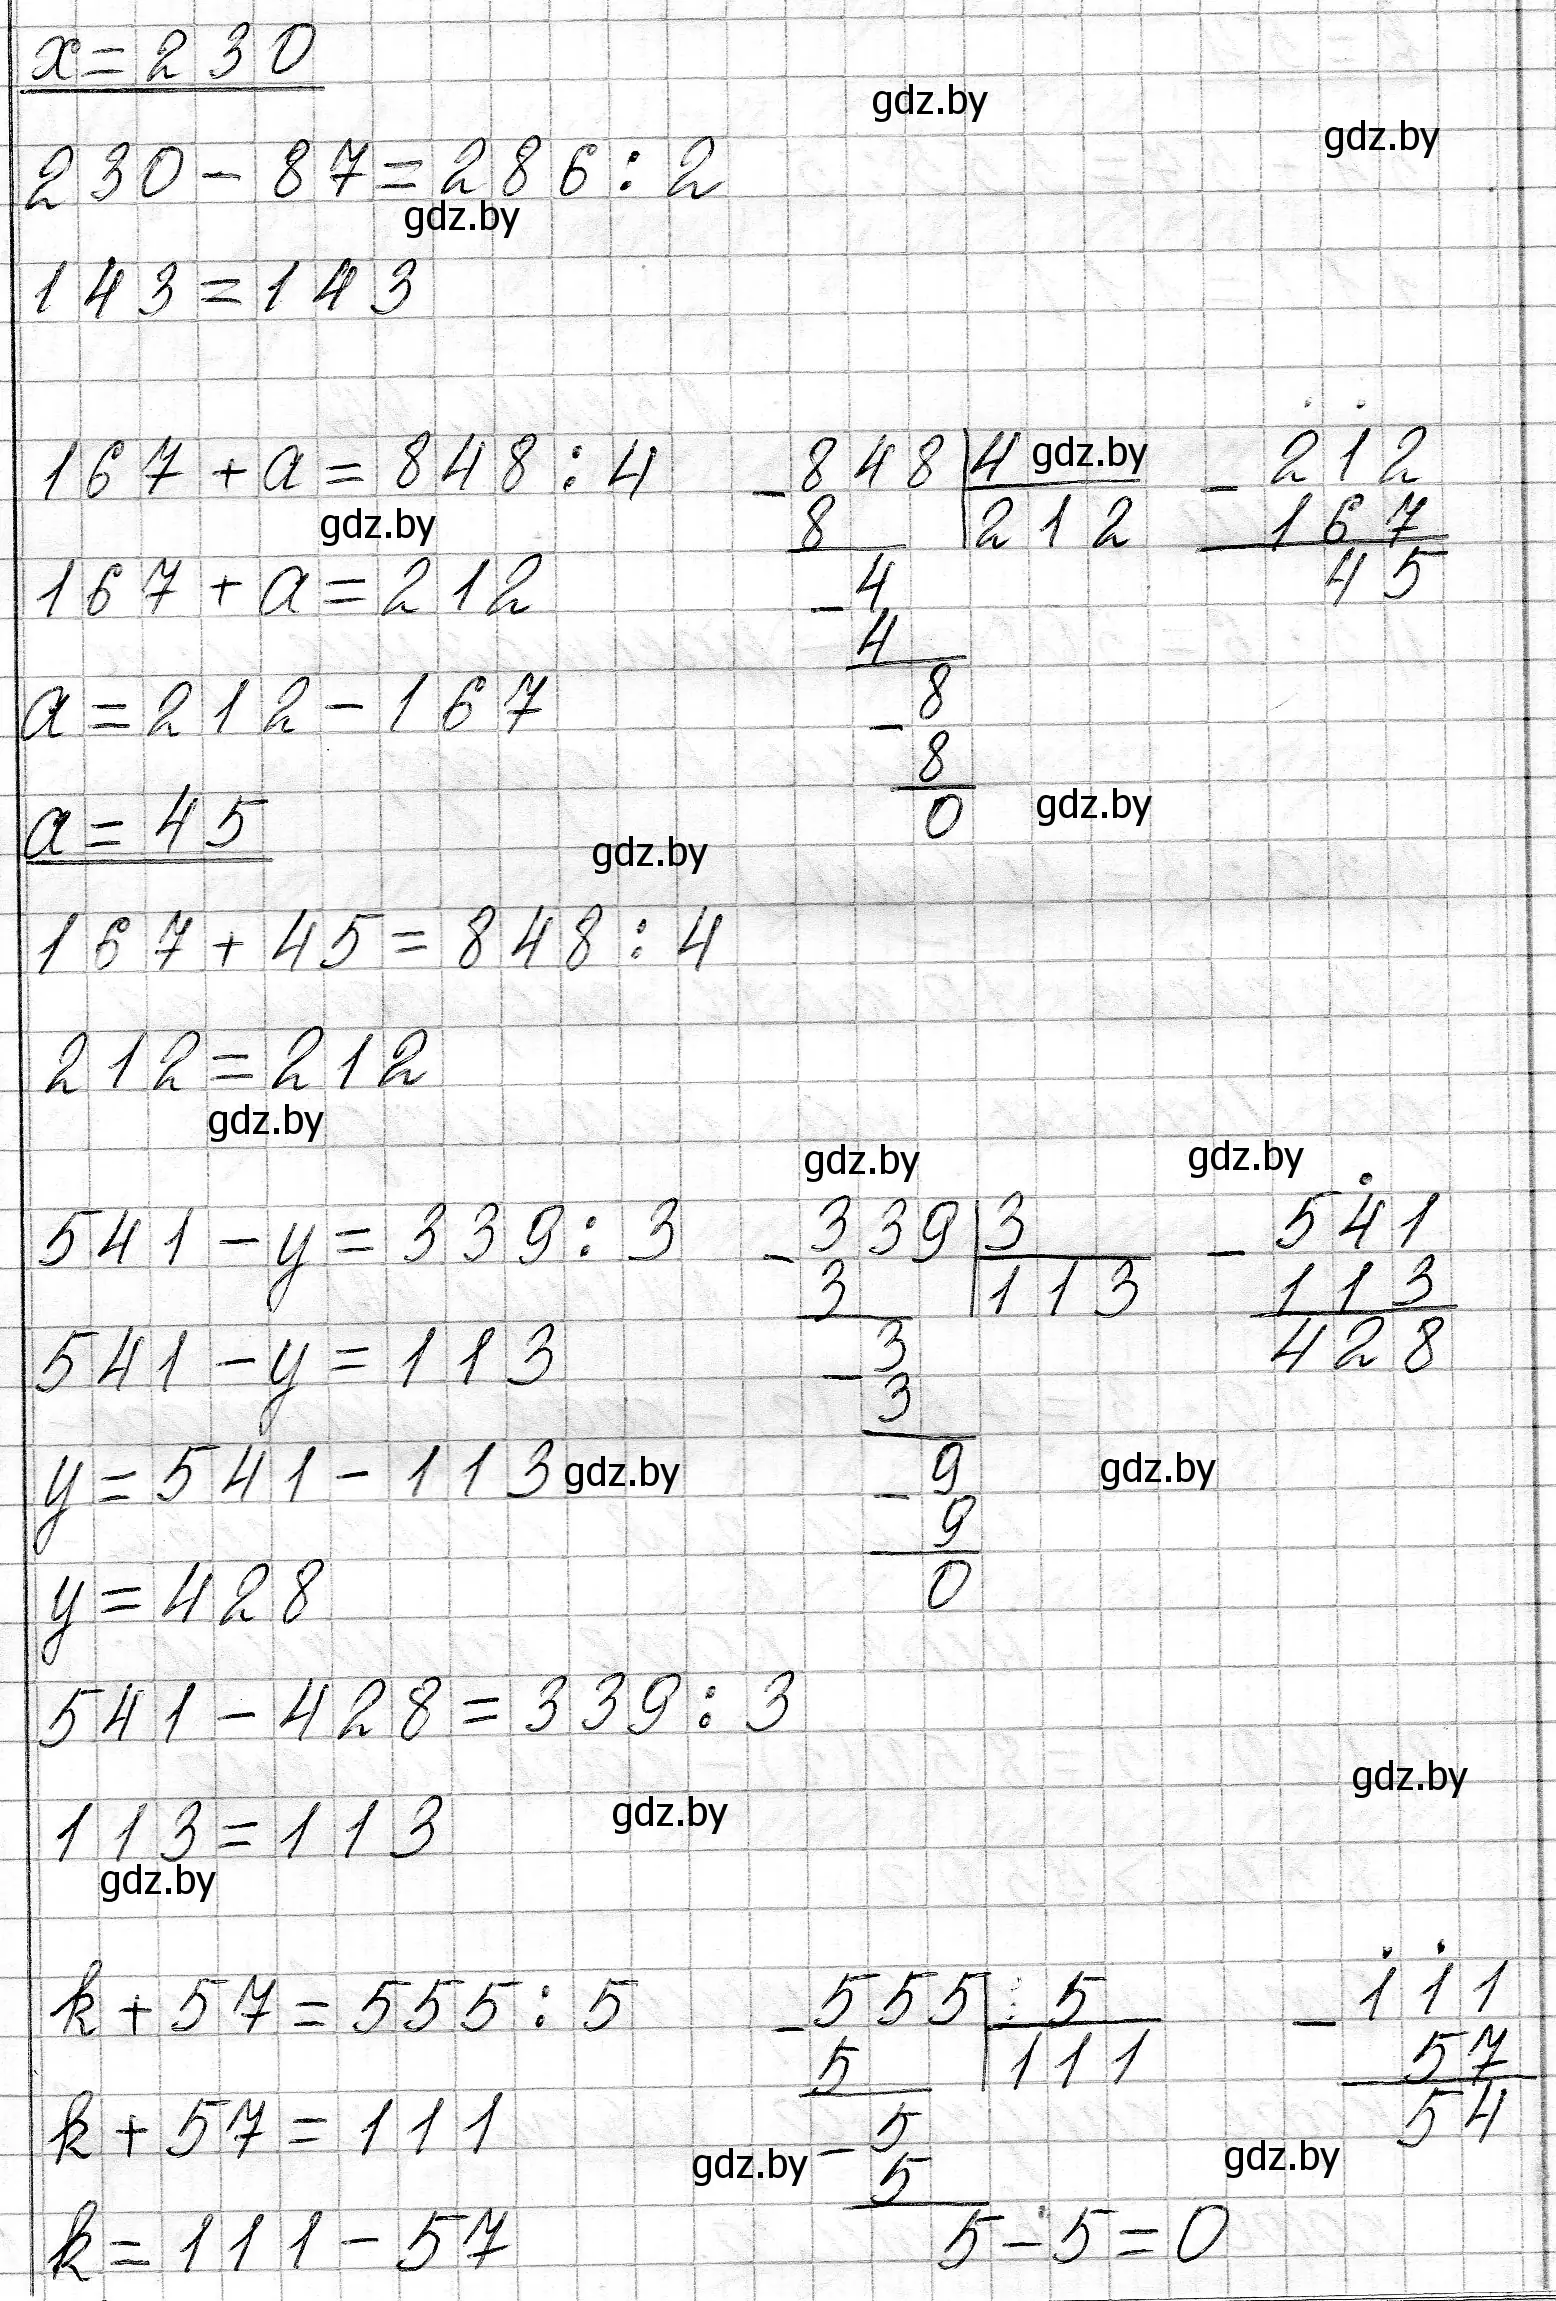 x = 230
gdz.by
gdz.by
230 - 87 = 286 : 2
gdz.by
143 = 143
167 + a = 848 : 4
gdz.by
167 + a = 212
a = 212 - 167
a = 45
- 848 | 4 gdz.by
8 | 212
- 4
4
- 8
8
0
- 212
167
45
gdz.by
gdz.by
167 + 45 = 848 : 4
212 = 212
gdz.by
gdz.by
gdz.by
541 - y = 339 : 3
541 - y = 113
y = 541 - 113 gdz.by
y = 428
- 339 | 3
3 | 113
- 3
3
- 9
9
0
- 541
113
428
gdz.by
541 - 428 = 339 : 3
gdz.by
113 = 113
gdz.by
gdz.by
k + 57 = 555 : 5
k + 57 = 111
k = 111 - 57
- 555 | 5
5 | 111
- 5
5
5 - 5 = 0
- 111
57
54
gdz.by
gdz.by